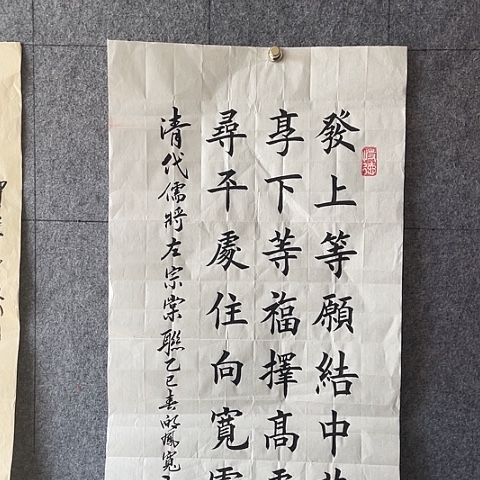 發上等願結中
享下等福擇高
尋平處住向寬
清代儒將左宗棠聯乙巳春